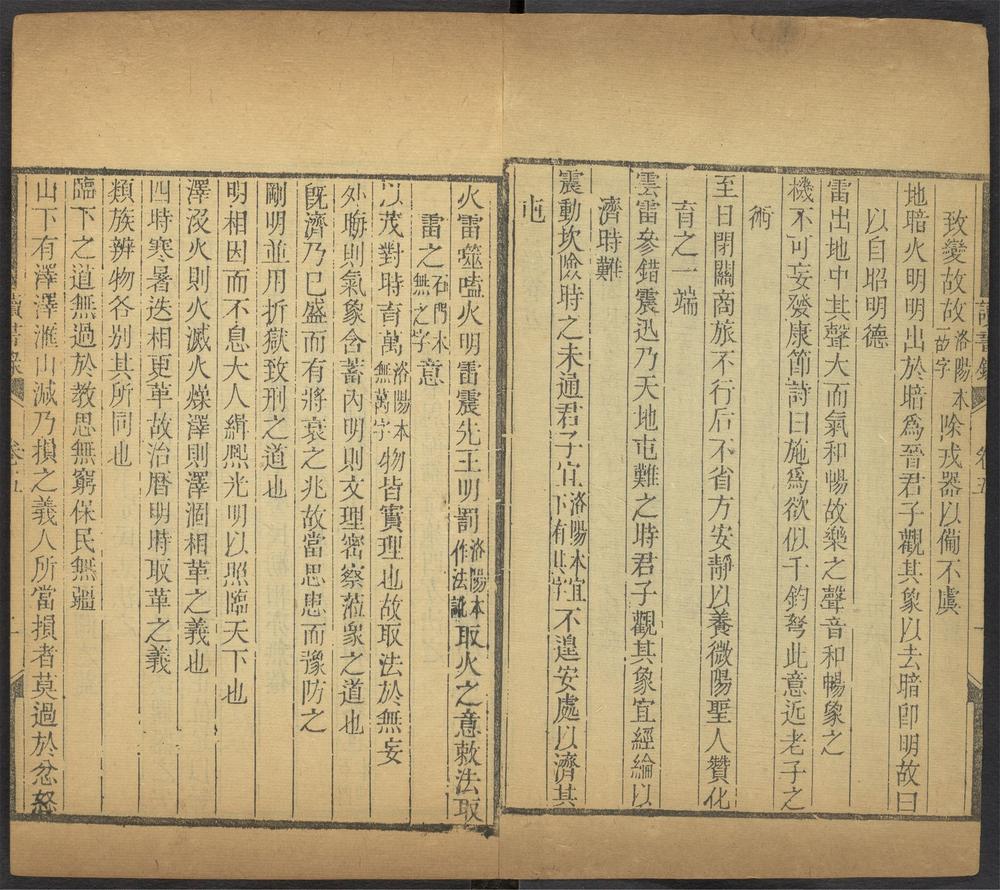 致變故故洛陽本一故字除戎器以備不虞
地暗火明明出於暗爲晉君子觀其象以去暗卽明故曰
以自昭明德
雷出地中其聲大而氣和暢故樂之聲音和暢象之
機不可妄發康節詩曰施爲欲似千鈞弩此意近老子之
術
至日閉關商旅不行后不省方安靜以養微陽聖人贊化
育之一端
雲雷參錯震迅乃天地屯難之時君子觀其象宜經綸以
濟時難
震動坎險時之未通君子宜洛陽本宜下有其字不遑安處以濟其
屯
讀書錄 卷五
火雷噬嗑火明雷震先王明罰洛陽本作法訛取火之意敕法取
雷之石門本無之字意
以茂對時育萬洛陽本無萬字物皆實理也故取法於無妄
外晦則氣象含蓄內明則文理密察蒞衆之道也
旣濟乃已盛而有將衰之兆故當思患而豫防之
剛明並用折獄致刑之道也
明相因而不息大人緝熙光明以照臨天下也
澤沒火則火滅火燥澤則澤涸相革之義也
四時寒暑迭相更革故治曆明時取革之義
類族辨物各別其所同也
臨下之道無過於教思無窮保民無疆
山下有澤澤滙山減乃損之義人所當損者莫過於忿怒